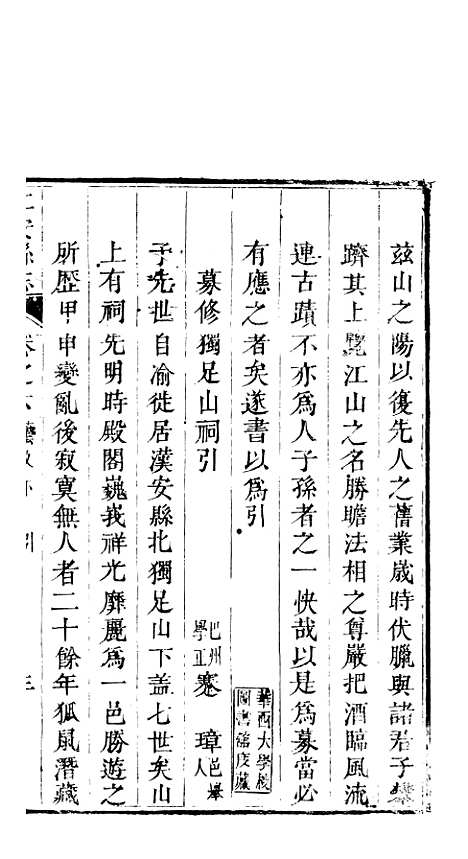 茲山之陽以復先人之舊業歲時伏臘與諸君子攀
躋其上覽江山之名勝瞻法相之尊嚴把酒臨風流
連古蹟不亦為人子孫者之一快哉以是為募當必
有應之者矣遂書以為引
募修獨足山祠引
巴州學正蹇璋邑舉人
予先世自渝徙居漢安縣北獨足山下蓋七世矣山
上有祠先明時殿閣巍峩祥光靡麗為一邑勝遊之
所歷甲申變亂後寂寞無人者二十餘年狐鼠潛藏
卷之六 藝文 引 三
華西大學校圖書舘庋藏